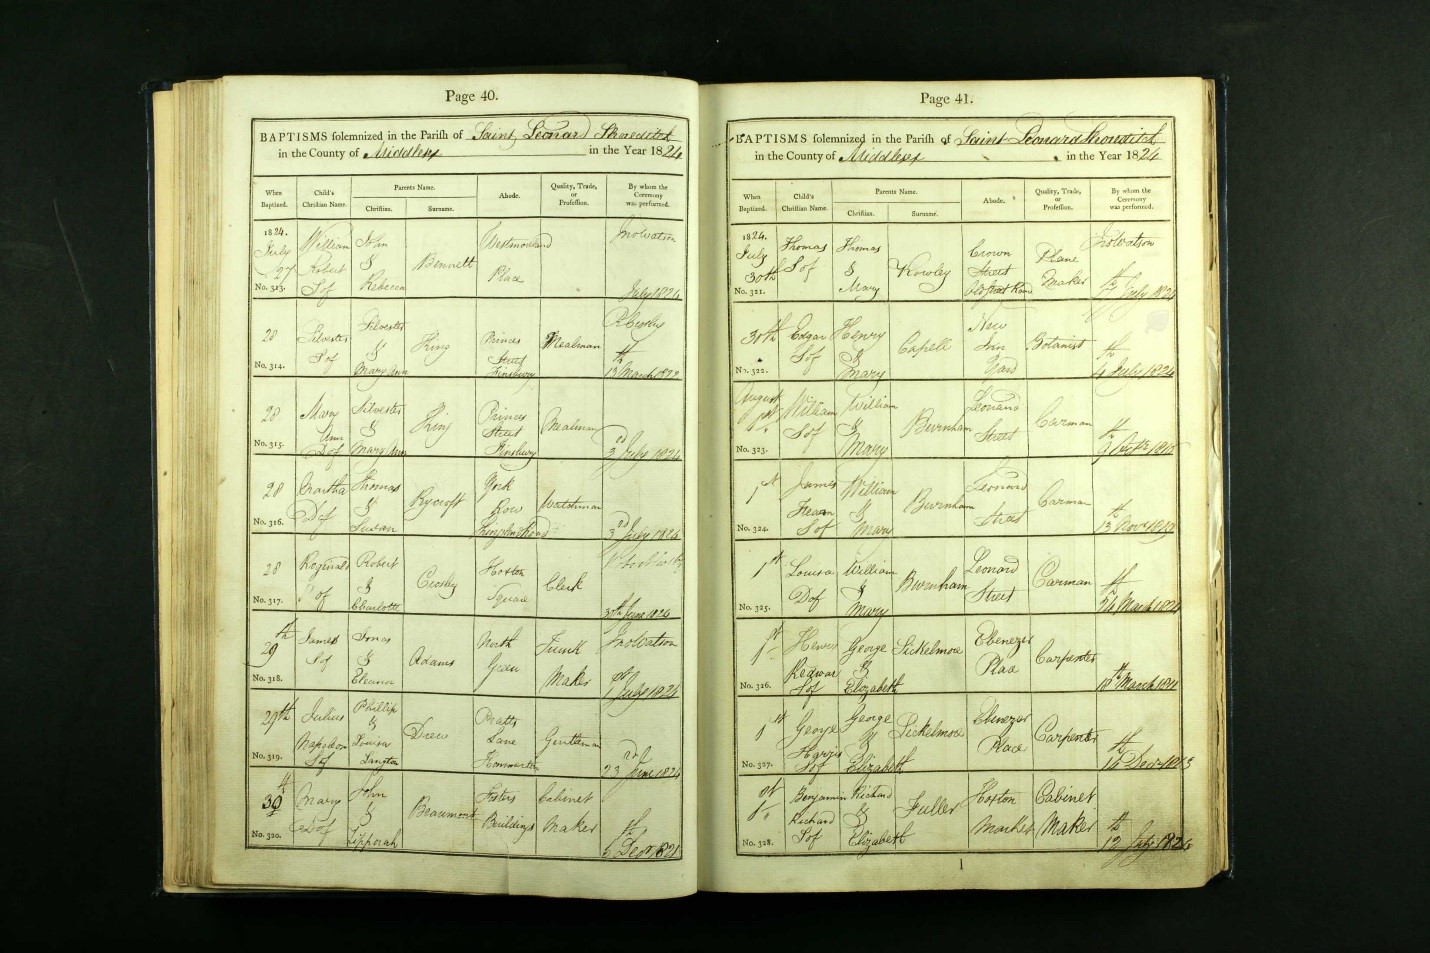 Page 40.
BAPTISMS solemnized in the Parish of Saint Leonard Shoreditch
in the County of Middlesex in the Year 1824
When Baptized.
Child's Christian Name.
Parents Name.
Christian.
Surname.
Abode.
Quality, Trade, or Profession.
By whom the Ceremony was performed.
1824.
July
27
No. 313.
William
Robert
S of
John
&
Rebecca
Bennett
Westmoreland
Place
Jno Watson
July 1824
28
No. 314.
Silvester
S of
Silvester
&
Mary Ann
King
Princes
Street
Finsbury
Mealman
R Crosley
13th March 1822
28
No. 315.
Mary
Ann
D of
Silvester
&
Mary Ann
King
Princes
Street
Finsbury
Mealman
2d July 1824
28
No. 316.
Martha
D of
Thomas
&
Susan
Rycroft
York
Row
Kingsland Road
Watchman
3d July 1824
28
No. 317.
Reginald
S of
Robert
&
Charlotte
Crosley
Hoxton
Square
Clerk
30th June 1824
29th
No. 318.
James
S of
Jonas
&
Eleanor
Adams
North
Green
Trunk
Maker
Jno Watson
1st July 1824
29th
No. 319.
Julius
Napoleon
S of
Phillip
&
Louisa
Drew
Pratts
Lane
Gentleman
23d June 1824
30th
No. 320.
Mary
D of
John
&
Zipporah
Beaumont
Fosters
Buildings
Cabinet
Maker
5th Decr 1821
Page 41.
BAPTISMS solemnized in the Parish of Saint Leonard Shoreditch
in the County of Middlesex in the Year 1824
When Baptized.
Child's Christian Name.
Parents Name.
Christian.
Surname.
Abode.
Quality, Trade, or Profession.
By whom the Ceremony was performed.
1824.
July
30th
No. 321.
Thomas
S of
Thomas
&
Mary
Rowley
Crown
Street
Old Street Road
Plane
Maker
Jno Watson
July 1824
30th
No. 322.
Edgar
S of
Henry
&
Mary
Capell
New
Inn
Yard
Botanist
4th July 1824
August
1st
No. 323.
William
S of
William
&
Mary
Burnham
Leonard
Street
Carman
1st
No. 324.
James
S of
William
&
Mary
Burnham
Leonard
Street
Carman
13th Novr
1st
No. 325.
Louisa
D of
William
&
Mary
Burnham
Leonard
Street
Carman
24th March 1824
1st
No. 326.
S of
George
&
Elizabeth
Sickelmore
Ebenezer
Place
Carpenter
18th March
1st
No. 327.
George
S of
George
&
Elizabeth
Sickelmore
Ebenezer
Place
Carpenter
14th Decr
1st
No. 328.
Benjamin
Richard
S of
Richard
&
Elizabeth
Fuller
Hoxton
Market
Cabinet
Maker
12th July 1824